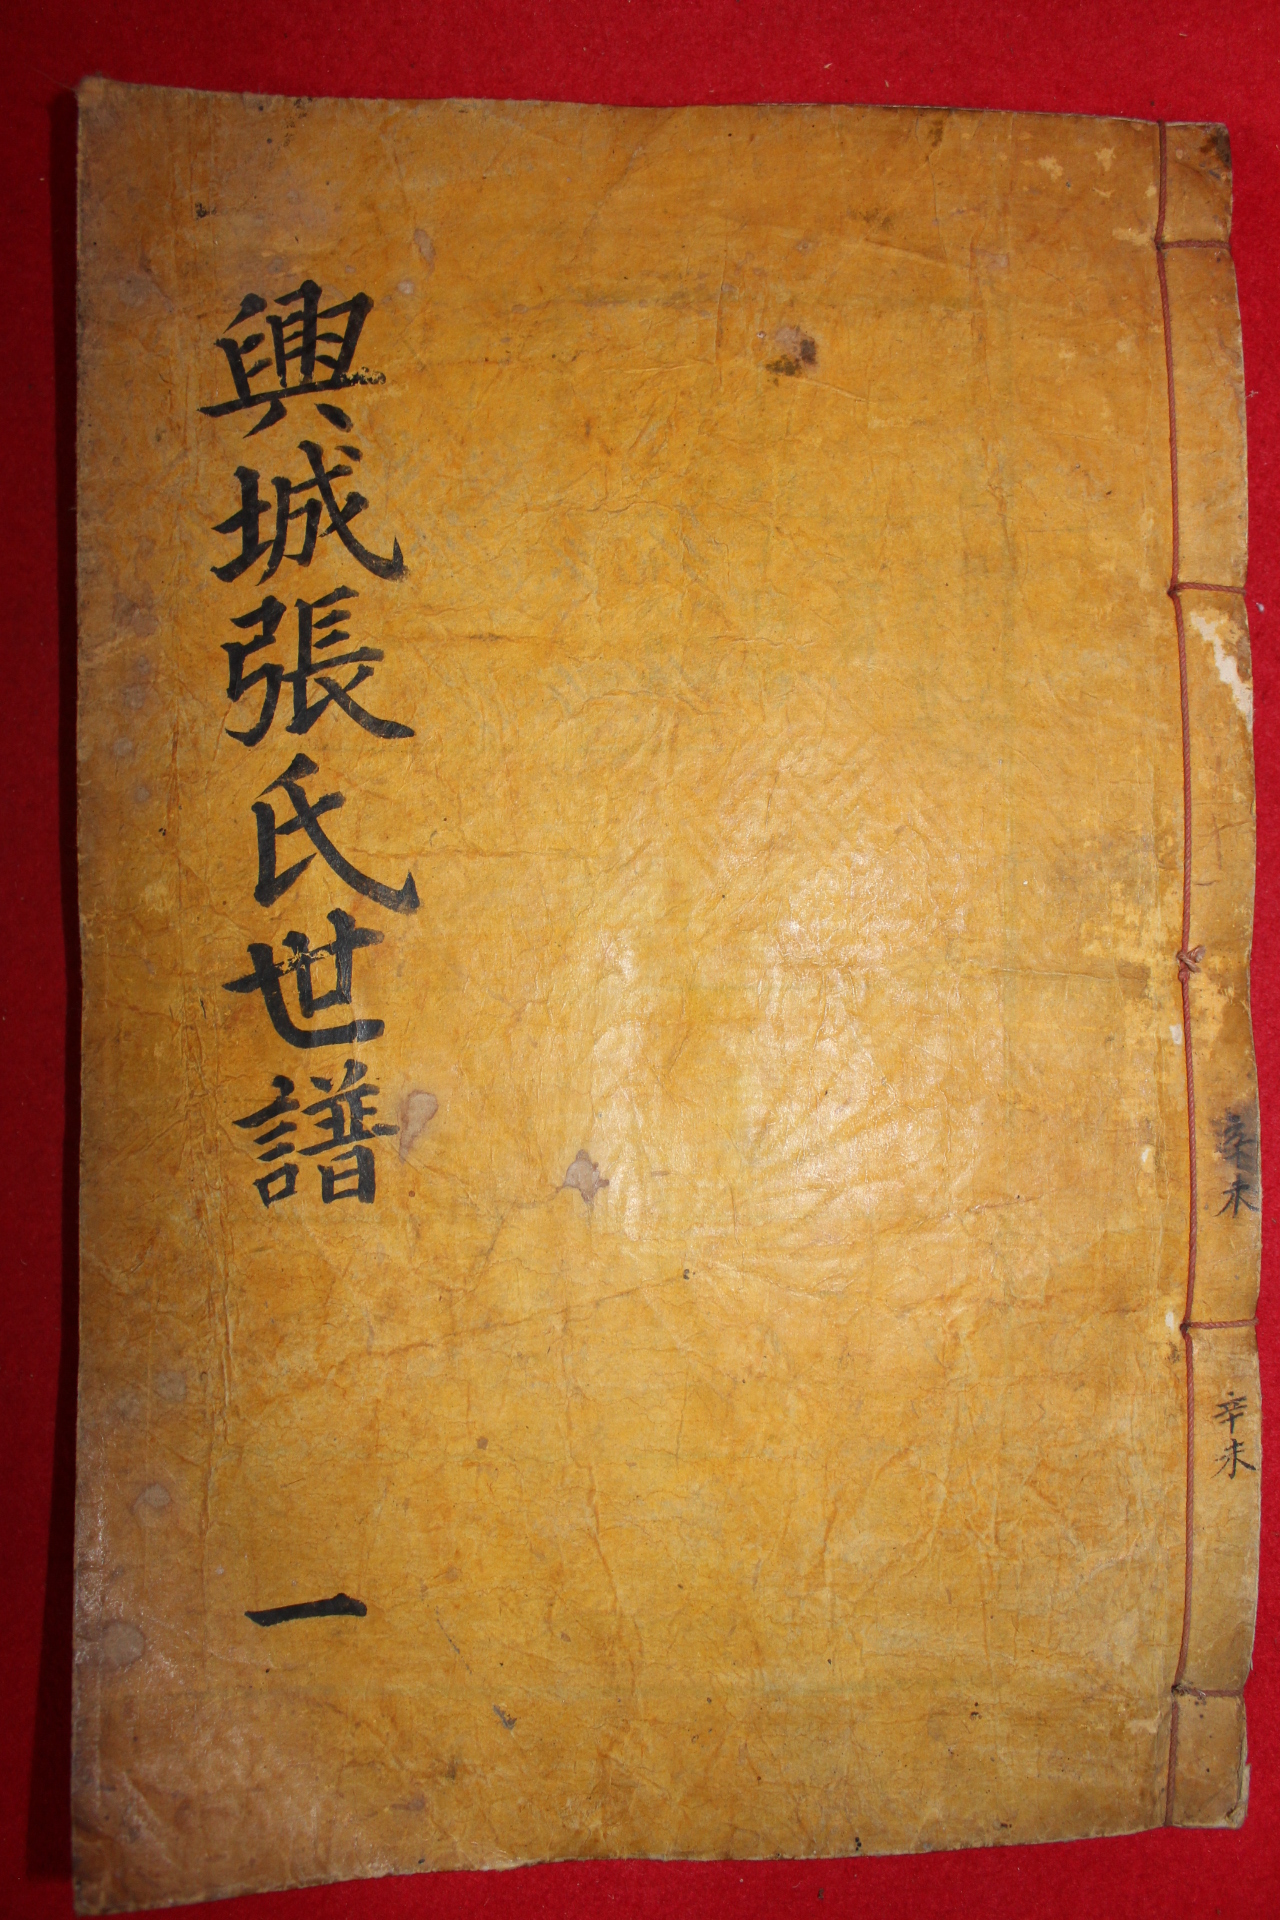 辛未
辛未
興城張氏世譜
一